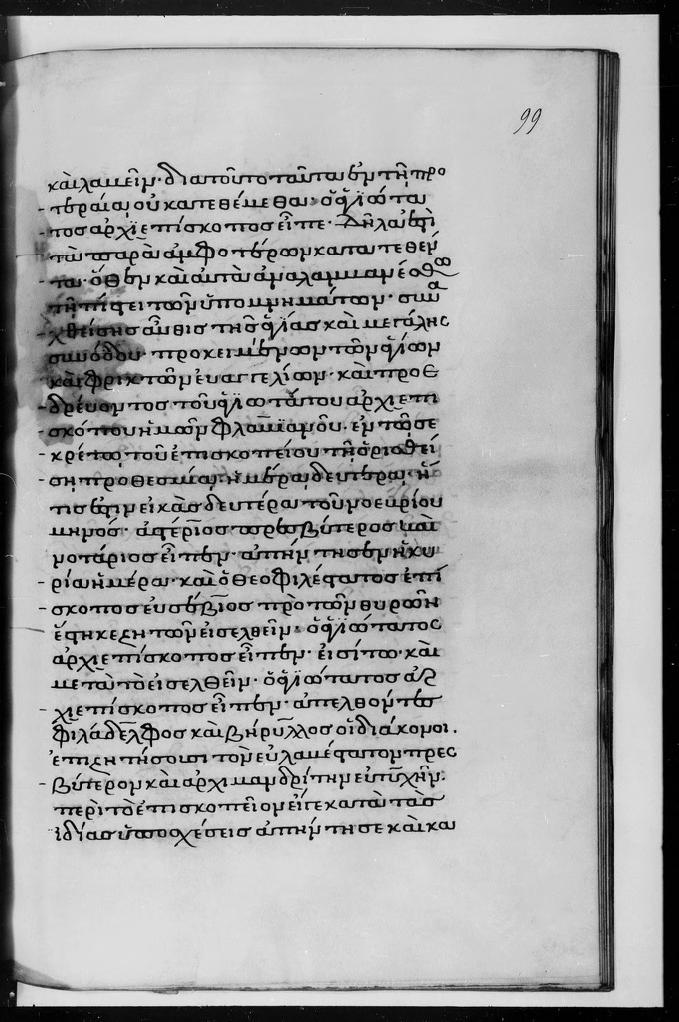 99
καὶ λαμεῖν· διὰ τοῦτο ταῦτα ἐν τῆ προ
τεραία οὐ κατεθέμεθα· ὁ ἁγιώτα
τος ἀρχιεπίσκοπος εἶπε· Δῆλά ἐστι
τὰ παρὰ ἀμφοτέρων κατατεθέν
τα· ὅθεν καὶ αὐτὰ ἀναλαμμανέσθω
τῆ πίστει τῶν ὑπομνημάτων· συνα
χθείσης αὖθις τῆς ἁγίας καὶ μεγάλης
συνόδου· προκειμένων τῶν ἁγίων
καὶ φρικτῶν εὐαγγελίων· καὶ προε
δρεύοντος τοῦ ἁγιωτάτου ἀρχιεπι
σκόπου ἡμῶν φλαμιανοῦ· ἐν τῶ σε
κρέτω τοῦ ἐπισκοπείου τῆ ὁρισθεί
ση προθεσμία, ἡμέρα δευτέρα, ἥ
τις ἐστιν εἰκὰς δευτέρα τοῦ νοεμρίου
μηνός· ἀστέριος πρεσβύτερος καὶ
νοτάριος εἶπεν· ἀπήντησεν ἡ κυ
ρία ἡμέρα· καὶ ὁ θεοφιλέστατος ἐπί
σκοπος εὐσέβιος πρὸ τῶν θυρῶν
ἕστηκε ζητῶν εἰσελθεῖν· ὁ ἁγιώτατος
ἀρχιεπίσκοπος εἶπεν· εἰσίτω· καὶ
μετὰ τὸ εἰσελθεῖν· ὁ ἁγιώτατος ἀρ
χιεπίσκοπος εἶπεν· ἀπελθόντες
φιλάδελφος καὶ βήρυλλος οἱ διάκονοι.
ἐπιζητήσουσι τὸν εὐλαμέστατον πρεσ
βύτερον καὶ ἀρχιμανδρίτην εὐτυχῆν.
περὶ τὸ ἐπισκοπεῖον εἴτε κατὰ τὰς
ἰδίας ὑποσχέσεις ἀπήντησε καὶ κα